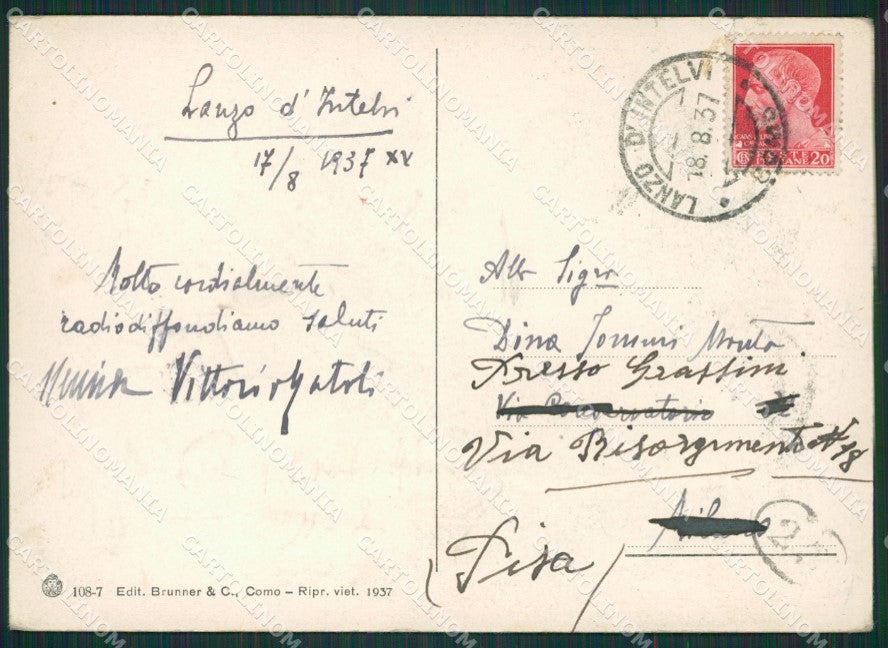 Lanzo d'Intelvi
17/8 1937 XV
Molto cordialmente
radiodiffondiamo saluti
Vittorio
108-7 Edit. Brunner & C., Como – Ripr. viet. 1937
LANZO D'INTELVI
18.8.37
POSTE ITALIANE 20
Alla Sigra
Dina
Presso Grassini
Via Conservatorio
Via Risorgimento N 18
Milano
Pisa
CARTOLINOMANIA